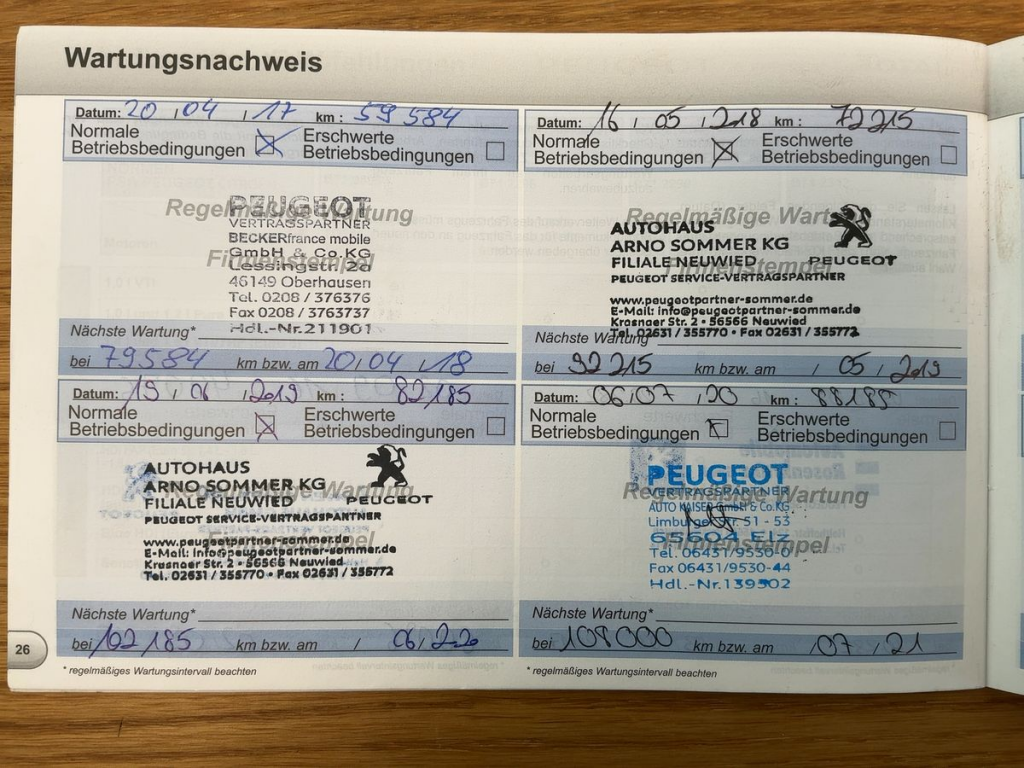 Wartungsnachweis
Datum: 20 , 04 , 17 km : 59 584
Normale Betriebsbedingungen
Erschwerte Betriebsbedingungen
Regelmäßige Wartung
PEUGEOT
VERTRAGSPARTNER
BECKERfrance mobile
GmbH & Co.KG
Firmenstempel
Lessingstr. 2d
46149 Oberhausen
Tel. 0208 / 376376
Fax 0208 / 763737
Hdl.-Nr.211901
Nächste Wartung*
bei 79584 km bzw. am 20 , 04 , 18
Datum: 16 , 05 , 218 km : 72215
Normale Betriebsbedingungen
Erschwerte Betriebsbedingungen
Regelmäßige Wartung
AUTOHAUS
ARNO SOMMER KG
FILIALE NEUWIED PEUGEOT
Firmenstempel
PEUGEOT SERVICE-VERTRAGSPARTNER
www.peugeotpartner-sommer.de
E-Mail: info@peugeotpartner-sommer.de
Krasnaer Str. 2 • 56566 Neuwied
Tel. 02631 / 355770 • Fax 02631 / 355772
Nächste Wartung
bei 92215 km bzw. am / 05 , 2019
Datum: 19 , 06 , 2019 km : 82185
Normale Betriebsbedingungen
Erschwerte Betriebsbedingungen
AUTOHAUS
ARNO SOMMER KG
Regelmäßige Wartung
FILIALE NEUWIED PEUGEOT
PEUGEOT SERVICE-VERTRAGSPARTNER
www.peugeotpartner-sommer.de
Firmenstempel
E-Mail: info@peugeotpartner-sommer.de
Krasnaer Str. 2 • 56566 Neuwied
Tel. 02631 / 355770 • Fax 02631 / 355772
Nächste Wartung*
bei 102185 km bzw. am / 06 , 2020
* regelmäßiges Wartungsintervall beachten
Datum: 06 , 07 , 20 km : 88185
Normale Betriebsbedingungen
Erschwerte Betriebsbedingungen
PEUGEOT
VERTRAGSPARTNER
Regelmäßige Wartung
AUTO KAISER GmbH & Co.KG
Limburger Str. 51 - 53
65604 Elz
Firmenstempel
Tel. 06431/9530-0
Fax 06431/9530-44
Hdl.-Nr.139302
Nächste Wartung*
bei 108000 km bzw. am / 07 , 21
* regelmäßiges Wartungsintervall beachten
26